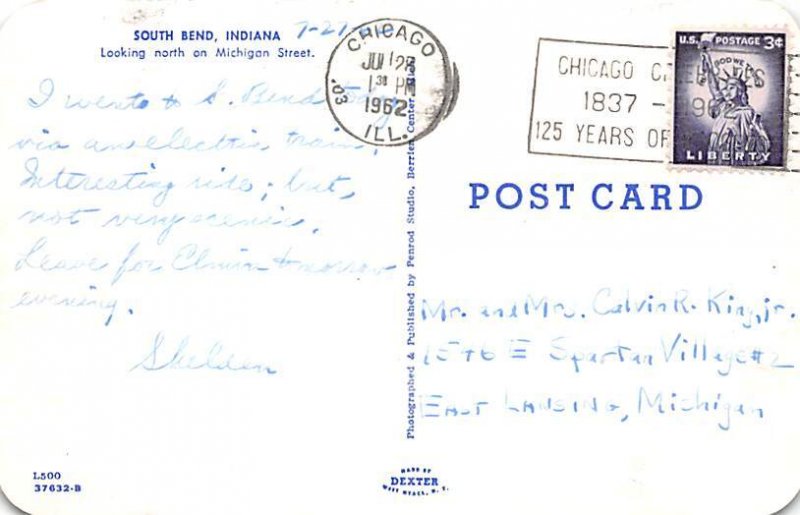 SOUTH BEND, INDIANA
Looking north on Michigan Street.
7-27
I went to S. Bend today
via an electric train.
Interesting ride; but,
not very scenic.
Leave for Elmira tomorrow
evening.
Sheldon
L500
37632-B
Photographed & Published by Penrod Studio, Berrien Center, Mich.
MADE BY
DEXTER
WEST NYACK, N. Y.
CHICAGO
JUL 28
1 30 PM
1962
ILL.
CHICAGO
1837 - 1962
125 YEARS OF
U.S. POSTAGE 3¢
IN GOD WE TRUST
LIBERTY
POST CARD
Mr. and Mrs. Calvin R. King, jr.
1546 E Spartan Village #2
EAST LANSING, Michigan